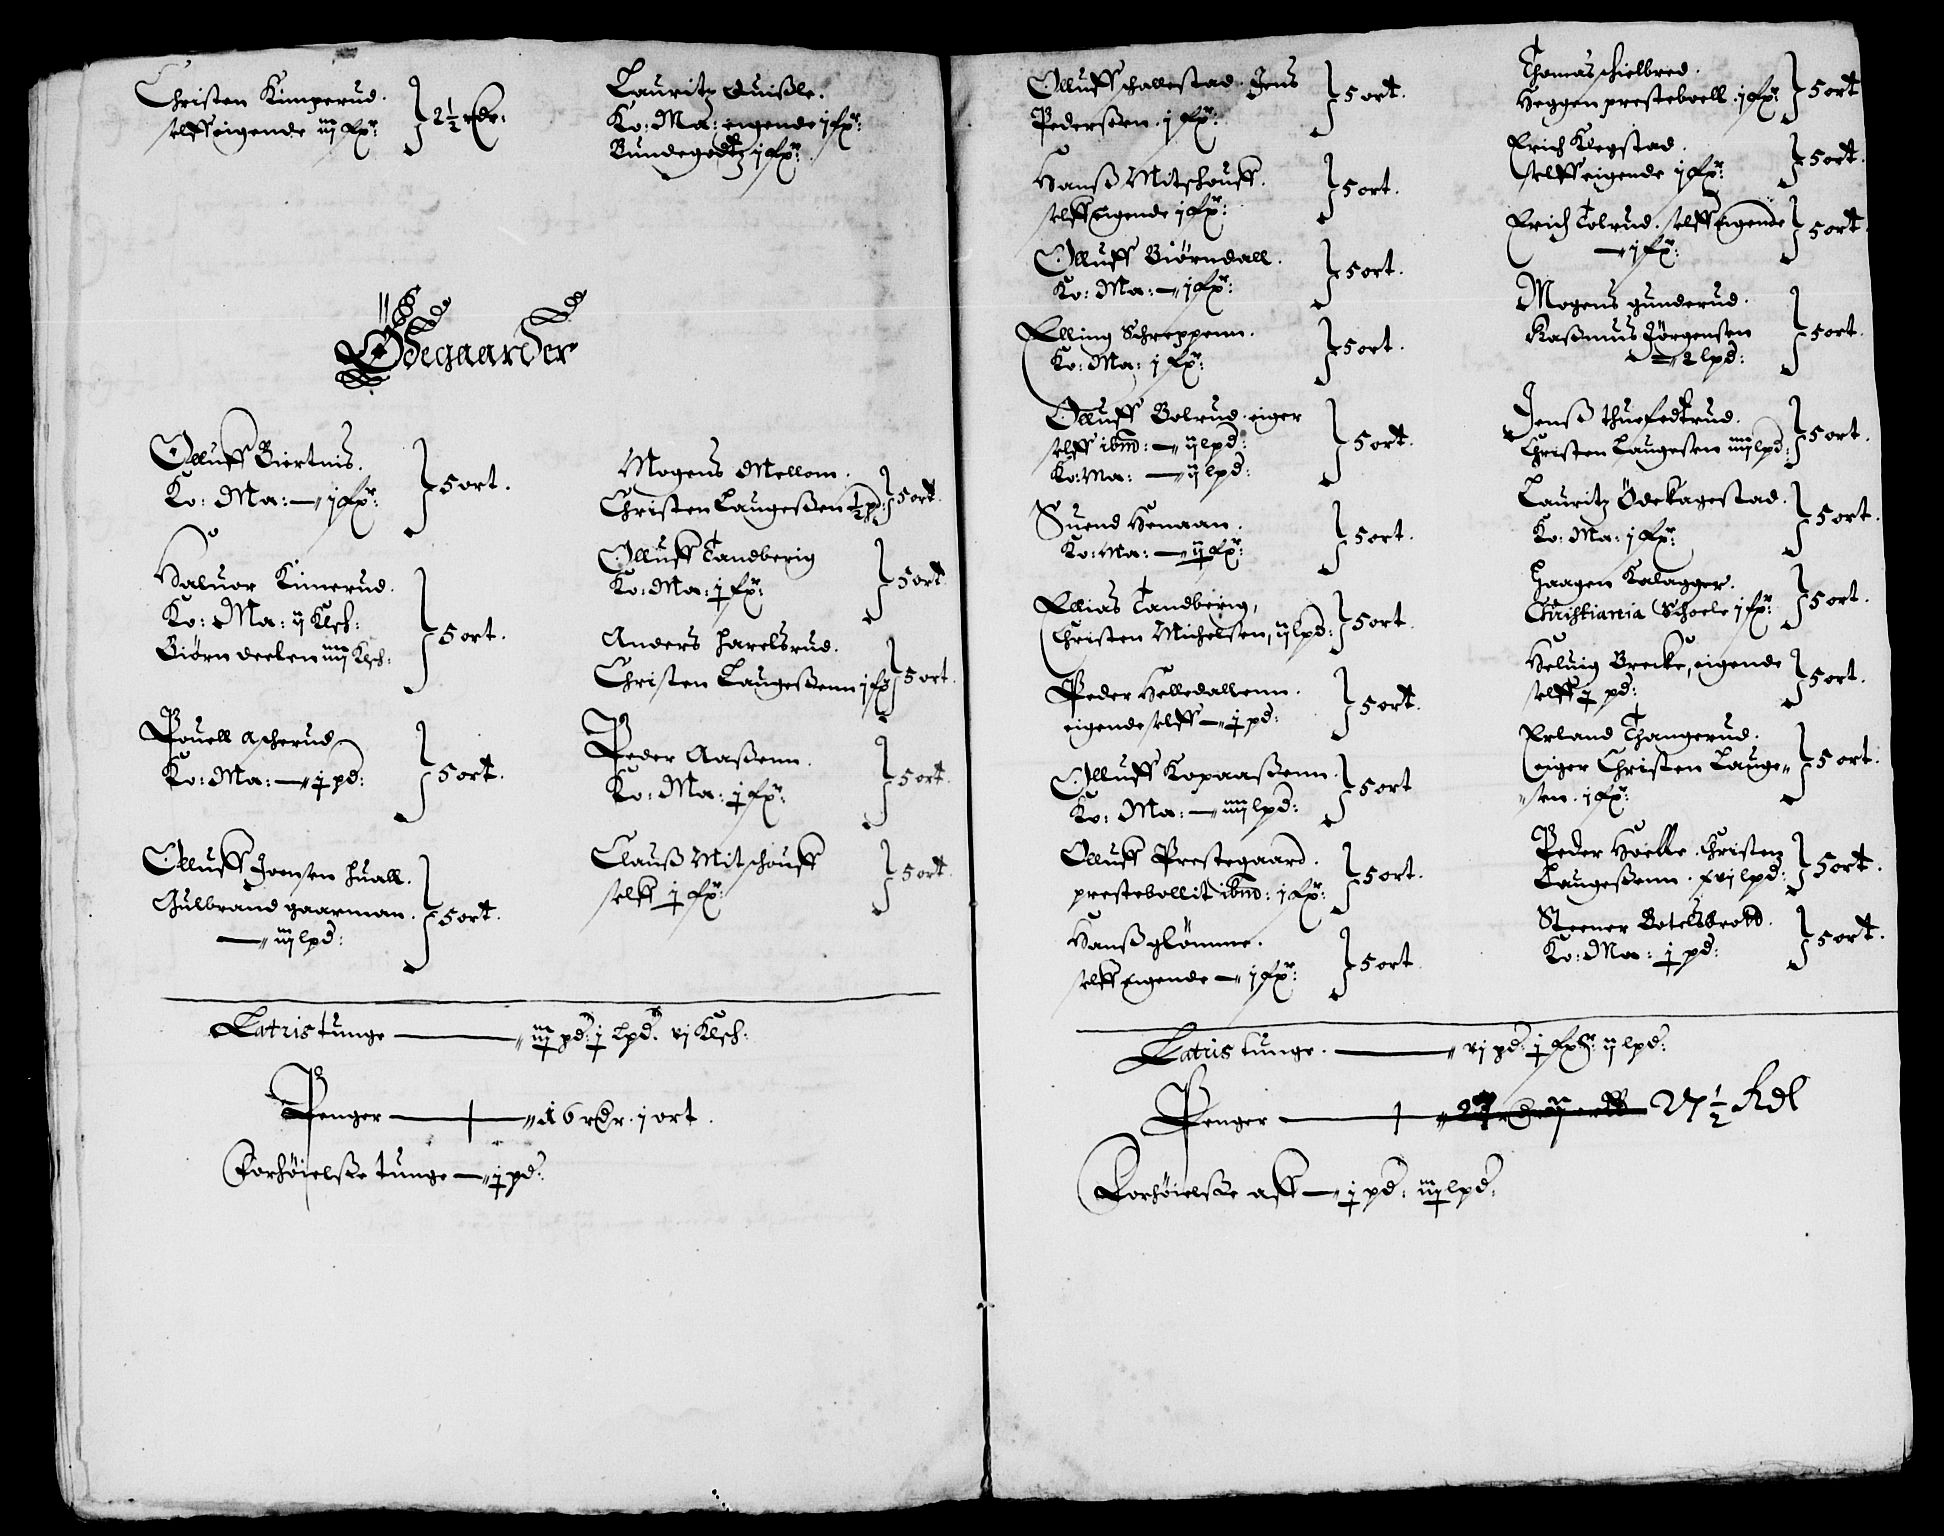 Christen Kimperud.
selffeigende iij fxr: } 2½ rdr:
Lauritz Quißle.
Ko: Ma: eigende j fxr:
Bundegodtz j fxr:
Ödegaarder
Olluff Biertnis.
Ko: Ma: — j fxr: } 5 ort.
Haluor Kimerud.
Ko: Ma: ij Klsch:
Biörn deelen iiij Klsch: } 5 ort.
Pouell Ascherud
Ko: Ma: — j pd: } 5 ort.
Olluff Joensen huall.
Gulbrand gaarman.
— iij lpd: } 5 ort.
Mogens Mellom.
Christen Laugeßen ½ pd: } 5 ort.
Olluff Tandberig
Ko: Ma: j fxr: } 5 ort
Anders harelsrud.
Christen Laugeßenn j fx } 5 ort.
Peder Aaßenn.
Ko: Ma: j fxr: } 5 ort.
Clauß Mitschouff
selff j fxr: } 5 ort
Latris tunge — iij pd: j lpd. vj Klsch:
Penger — 16 rdr. j ort.
Forhöielße tunge — j pd:
Olluff schallestad. Jens
Pederßen. j fxr: } 5 ort.
Hanß Mitschouff.
selffEigende j fxr: } 5 ort.
Olluff Biörndall.
Ko: Ma: — j fxr: } 5 ort.
Elling Schreppenn.
Ko: Ma: j fxr: } 5 ort.
Olluff Bolrud. eiger
selff ibnd: — ij lpd:
Ko: Ma: — ij lpd: } 5 ort.
Suend Henaan.
Ko: Ma: — ij fxr: } 5 ort.
Ellias Tandberig,
Christen Michelsen, ij lpd: } 5 ort.
Peder Helledallenn.
eigende selff — j pd: } 5 ort.
Olluff Kopaaßenn.
Ko: Ma: — iiij lpd: } 5 ort
Olluff Prestegaard.
prestebollit ibnd: j fxr: } 5 ort.
Hanß glömme.
selffEigende — j fxr: } 5 ort
Thomas schielbred.
Heggen presteboell. j fxr: } 5 ort
Erich Klegstad.
selffeigende j fxr: } 5 ort.
Erich Tolrud. selffEigende
— j fxr: } 5 ort.
Mogens gunderud.
Raßmus Jörgensen
— 2 lpd: } 5 ort.
Jenß thuefedtrud.
Christen Laugesen iiij lpd: } 5 ort.
Lauritz Ödekagestad.
Ko: Ma: j fxr: } 5 ort.
Haagen Kalagger.
Christiania Schoele j fxr: } 5 ort.
Heluig Brecke, eigende
selff j pd: } 5 ort.
Erland Thangerud.
eiger Christen Lauge-
sen. j fxr: } 5 ort.
Peder Hoelle. Christen
Laugeßenn. xvj lpd: } 5 ort.
Steener Botelsbrodd.
Ko: Ma: j pd: } 5 ort.
Latris tunge. — vj pd: j fxr: ij lpd:
Penger — 27½ Rdl
Forhöielße aff — j pd: iij lpd: